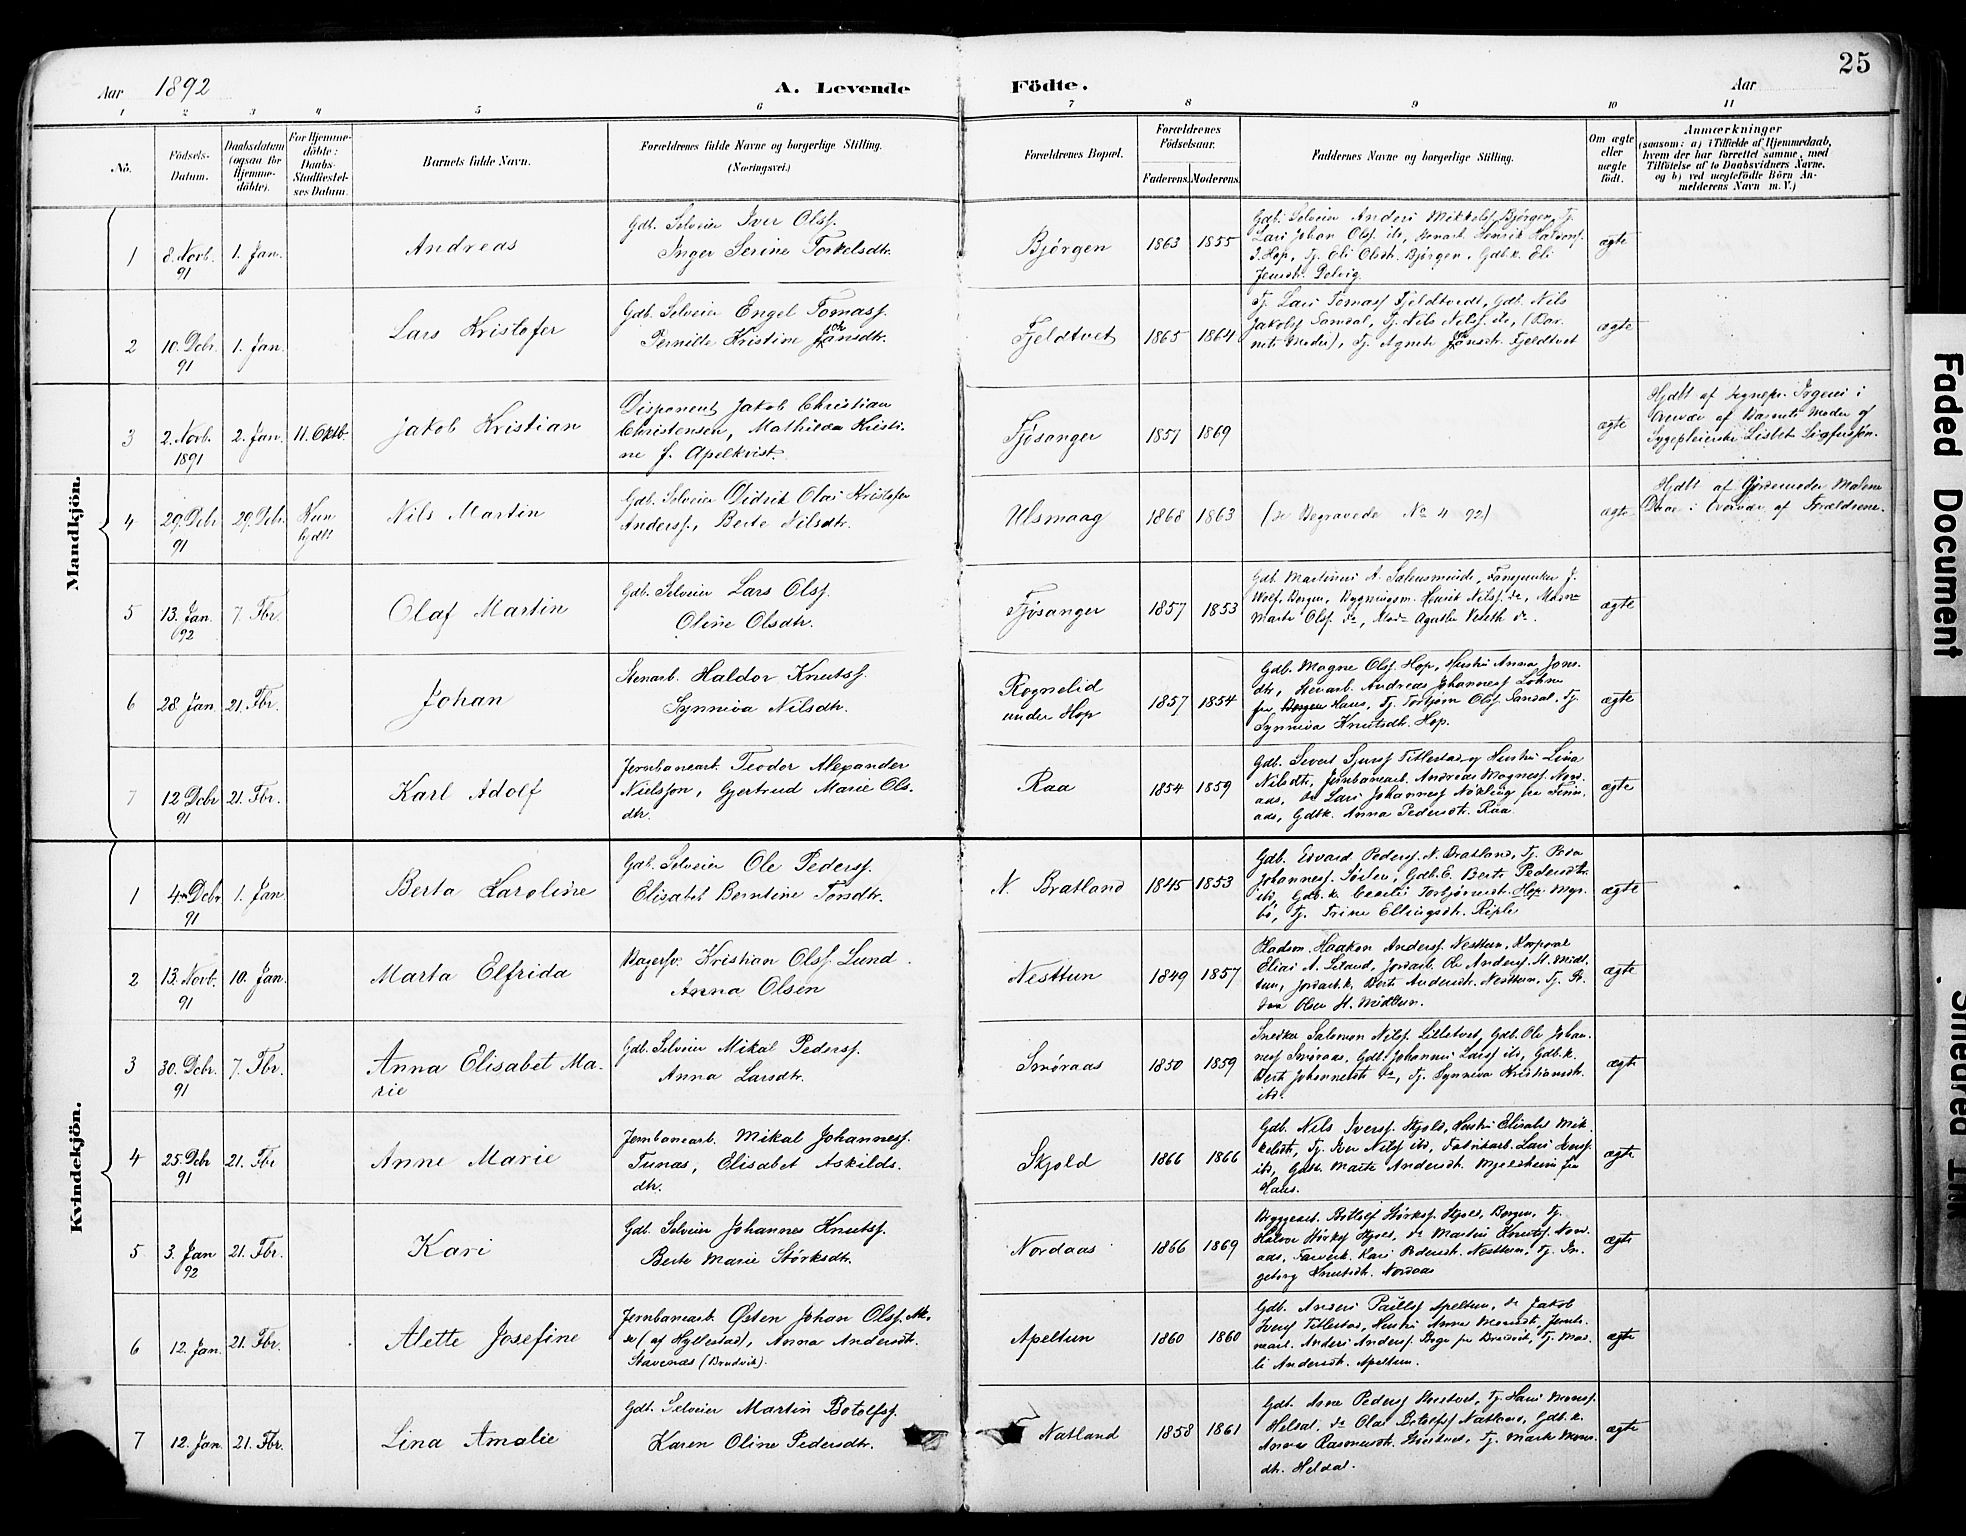 25
Aar 1892 A. Levende Födte. Aar
1 2 3 4 5 6 7 8 9 10 11
No.
Födsels-Datum.
Daabsdatum (ogsaa for Hjemme-döbte).
For Hjemme-döbte: Daabs-Stadfæstel-ses Datum.
Barnets fulde Navn.
Forældrenes fulde Navne og borgerlige Stilling.
(Næringsvei.)
Forældrenes Bopæl.
Forældrenes Födselsaar.
Faderens. Moderens.
Faddernes Navne og borgerlige Stilling.
Om ægte eller uægte födt.
Anmærkninger
(saasom: a) i Tilfælde af Hjemmedaab,
hvem der har forrettet samme, med
Tilföielse af to Daabsvidners Navne,
og b) ved uægtefödte Börn An-
melderens Navn m. V.)
Mandkjön.
1 8. Novb. 91 1. Jan. Andreas
Gdb. Selveier Iver Olsf.
Inger Serine Torkelsdtr.
Bjørgen 1863 1855
Gdb. Selveier Anders Mikkelsf. Bjørgen, Tj.
Lars Johan Olsf. ib.,
Hop, Tj. Eli Olsdtr. Bjørgen, Gdbk. Eli
ægte
2 10. Debr. 91 1. Jan. Lars Kristofer
Gdb. Selveier Engel Tomasf.
Pernille Kristine Jansdtr.
Fjeldtvet 1865 1864
Tj. Lars Tomasf. Fjeldtvedt, Gdb. Nils
Jakobsf. Sandal, Tj. Nils Nilsf. ib., (Bar-
nets Moder), Tj. Agnete Fjeldtvet
ægte
3 2. Novb. 1891 2. Jan. 11. Oktb. Jakob Kristian
Disponent Jakob Christian
Christensen, Mathilda Kristi-
ne f. Apelkvist.
Fjøsanger 1857 1869
ægte
Hjdbt af Sognepr. Irgens i
Overvær af Barnets Moder og
Sygepleierske Lisbet Sigfussøn.
4 29. Debr 91 29. Debr. Kun hjdbt Nils Martin
Gdb. Selveier Didrik Olai Kristofer
Andersf., Berte Nilsdtr.
Ulsmaag 1868 1863
(se Begravede No 4 92)
ægte
Hjdbt af Gjordemoder Malene
i Overvær af Forældrene.
5 13. Jan. 92 7. Fbr. Olaf Martin
Gdb. Selveier Lars Olsf.
Oline Olsdtr.
Fjøsanger 1857 1853
Gdb. Martinus A. Sælensminde,
Wolf, Bergen, Bygningsm. Henrik Nilsf. do,
Marta Olsf. do,
ægte
6 28. Jan. 21. Fbr. Johan
Stenarb. Haldor Knutsf.
Synneva Nilsdtr.
Rognelid
under Hop
1857 1854
Gdb. Magne Olsf. Hop, Hustru Anna Jons-
dtr., Stenarb. Andreas Johannesf. Løhne
fra Haus, Tj. Torbjørn Olsf. Sandal, Tj.
Synneva Knutsdtr. Hop.
ægte
7 12 Debr 91 21. Fbr. Karl Adolf
Jernbanearb. Teodor Alexander
Nielssøn, Gjertrud Marie Ols-
dtr.
Raa 1854 1859
Gdb. Severt Sjursf. Tittlestad og Hustru Lina
Nilsdtr., Jernbanearb. Andreas Magnesf. Nord-
aas, do Lars Johannesf. Nøkling fra
aas, Gdbk. Anna Pedersdtr. Raa.
ægte
Kvindekjön.
1 4. Debr 91 1. Jan. Berta Karoline
Gdb. Selveier Ole Pedersf.
Elisabet Berntine Torsdtr.
N. Bratland 1845 1853
Gdb. Edvard Pedersf. N. Bratland, Tj.
Johannesf. Gdbk. Berte Pedersdtr.
ib., Gdbk. Torbjørnsdtr. Hop, Myr-
bø, Tj. Trine Ellingsdtr. Riple
ægte
2 13. Novb. 91 10. Jan. Marta Elfrida
Bagersv. Kristian Olsf. Lund
Anna Olsen
Nesttun 1849 1857
Haakon Andersf. Nesttun, Korporal
Elias A. Seland, Jordarb. Ole Andersf. St. Midt-
tun, Jordarb.k. Berte Andersdtr. Nesttun, Tj.
Olsen St. Midttun.
ægte
3 30. Debr. 91 7. Fbr. Anna Elisabet Ma-
rie
Gdb. Selveier Mikal Pedersf.
Anna Larsdtr.
Smøraas 1850 1859
Snedker Salomon Nilsf. Lilletvet, Gdb. Ole Johan-
nesf. Smøraas, Gdb. Johannes Larsf. ib., Gdb.k.
Berte Johannesdtr. do, Tj. Synneva Kristiansdtr.
ibd.
ægte
4 25. Debr 91 21. Fbr Anne Marie
Jernbanearb. Mikal Johannesf.
Tunas, Elisabet Askilds-
dtr.
Skjold 1866 1866
Gdb. Nils Iversf. Skjold, Hustru Elisabet Mik-
kelsdtr., Tj. Iver Nilsf. ibd, Fabrikarb. Lars Iversf.
ibd, Marte Andersdtr. Mjeldheim fra
Haus.
ægte
5 3. Jan 92 21. Fbr. Kari
Gdb. Selveier Johannes Knutsf.
Berte Marie Størksdtr.
Nordaas 1866 1869
Bryggearb. Botlolf Størksf. Bergen, Tj.
Haldor Størksf. do Martin Knutsf. Nord-
aas, Kari Pedersdtr. Nesttun, Tj. In-
geborg Knutsdtr. Nordaas
ægte
6 12. Jan. 21. Fbr. Alette Josefine
Jernbanearb. Østen Johan Olsf.
(af Hyllestad), Anna Andersdtr.
Stavenes (Brudvik).
Apeltun 1860 1860
Gdb. Anders Paulsf. Apeltun, do Jakob
Iversf. Tittlestad, Hustru Anna Monsdtr., Jernb-
nearb. Anders Andersf. fra Brudvik, Tj. Mar-
li Andersdtr. Apeltun.
ægte
7 12. Jan. 21. Fbr. Lina Amalie
Gdb. Selveier Martin Botolfsf.
Karen Oline Pedersdtr.
Natland 1858 1861
Gdb. Arne Pedersf. Tj. Hans Monsf.
Heldal, do Olai Botolfsf. Natland, Gdb.k.
Anna Rasmusdtr. Tj. Marte Mons-
dtr. Heldal.
ægte
Faded Document
Smeared Ink